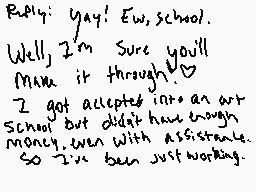 Reply: Yay! Ew, school.
Well, I'm sure you'll
make it through! ♡
I got accepted into an art
school but didn't have enough
money, even with assistance.
So I've been just working.